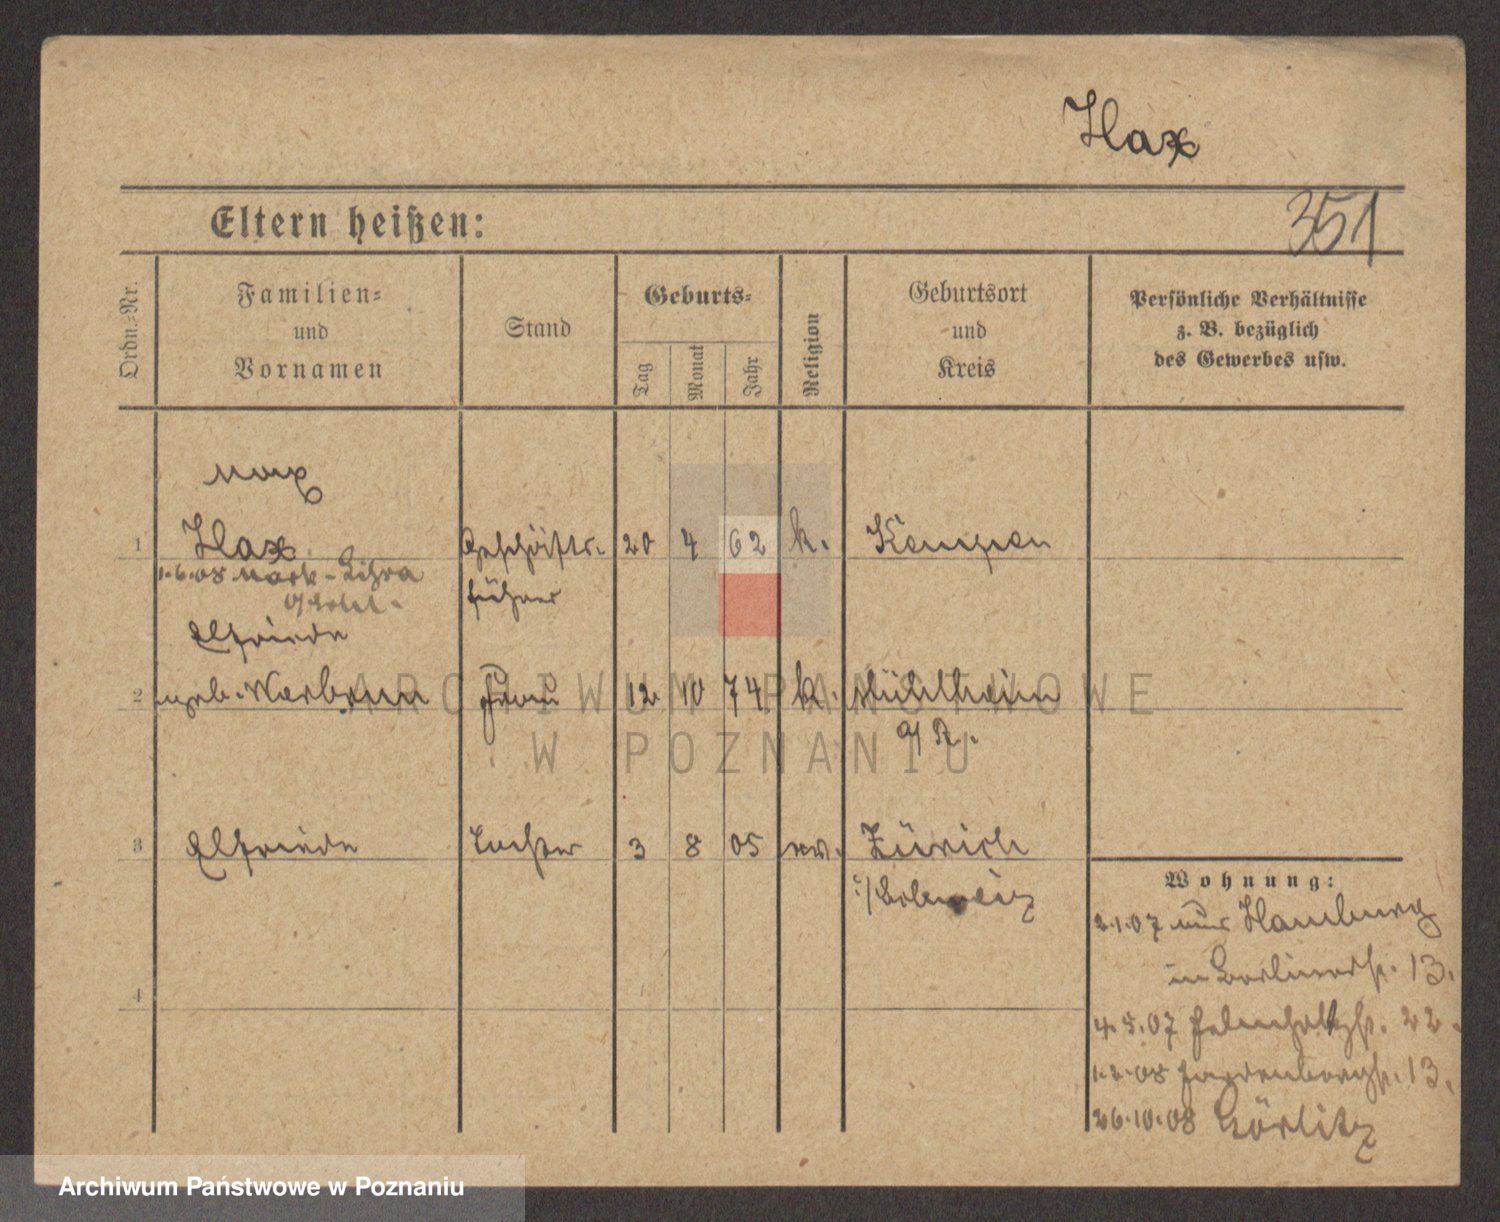 Hax
Eltern heißen:
351
Ordn.-Nr.
Familien-
und
Vornamen
Stand
Geburts-
Tag
Monat
Jahr
Religion
Geburtsort
und
Kreis
Persönliche Verhältnisse
z. B. bezüglich
des Gewerbes usw.
Max
1 Hax Geschäfts- 20 4 62 k. Kempen
1.6.08
führer
Elfriede
2 geb. Frau 12 10 74 k. Mühlheim
a/R.
3 Elfriede Tochter 3 8 05 ev. Zürich
i/Schweiz
4
Wohnung:
2.1.07 aus Hamburg
in Berlinerstr. 13.
4.5.07 22.
1.2.08 13.
26.10.08 Görlitz
ARCHIWUM PAŃSTWOWE
W POZNANIU
Archiwum Państwowe w Poznaniu